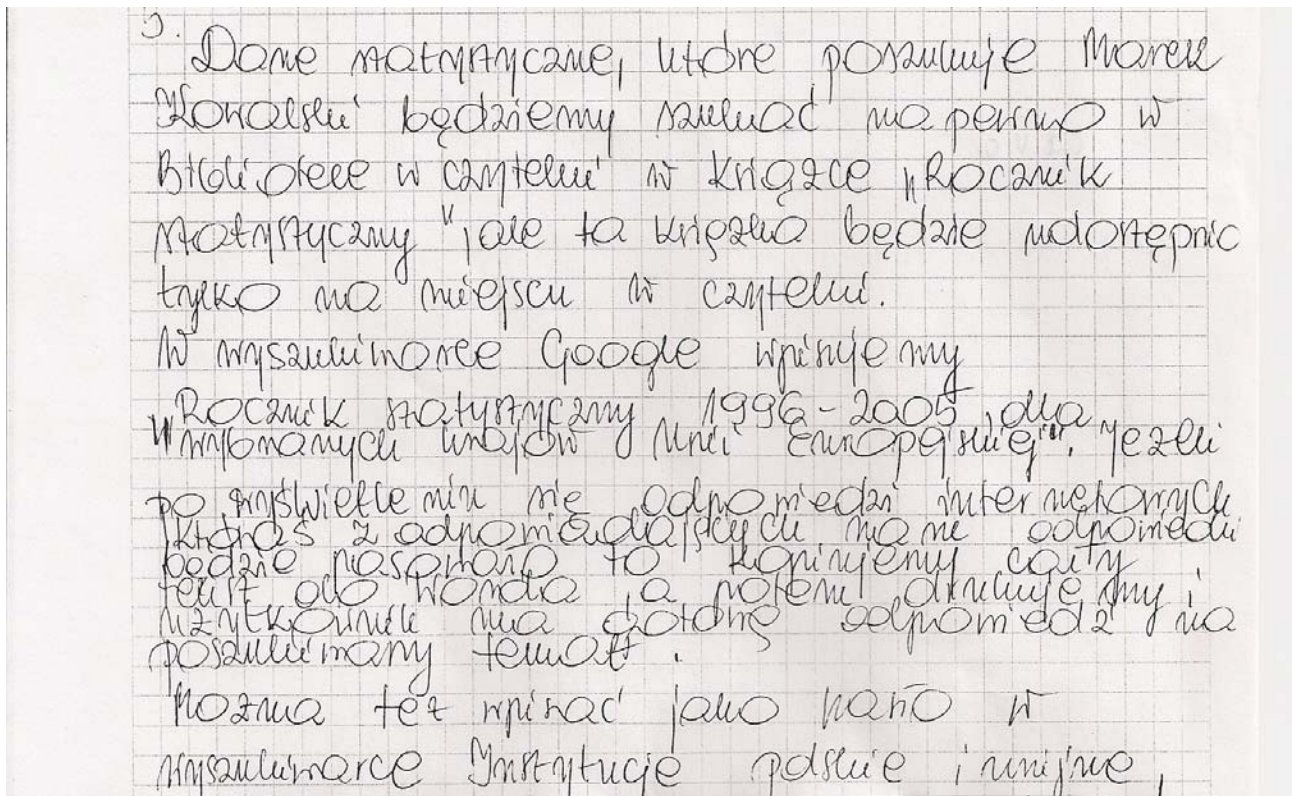 5.
Dane statystyczne, które poszukuje Marek
Kowalski będziemy szukać na pewno w
Bibliotece w czytelni w książce „Rocznik
statystyczny", ale ta książka będzie udostępnić
tylko na miejscu w czytelni.
W wyszukiwarce Google wpisujemy
„Rocznik statystyczny 1996-2005 dla
wybranych krajów Unii Europejskiej". Jeżeli
po wyświetleniu się odpowiedzi internetowych
któraś z odpowiadających nam odpowiedzi
będzie pasowało to kopiujemy cały
tekst do Worda, a potem drukujemy i
użytkownik ma gotową odpowiedź na
poszukiwany temat.
Można też wpisać jako hasło w
wyszukiwarce Instytucje polskie i unijne,